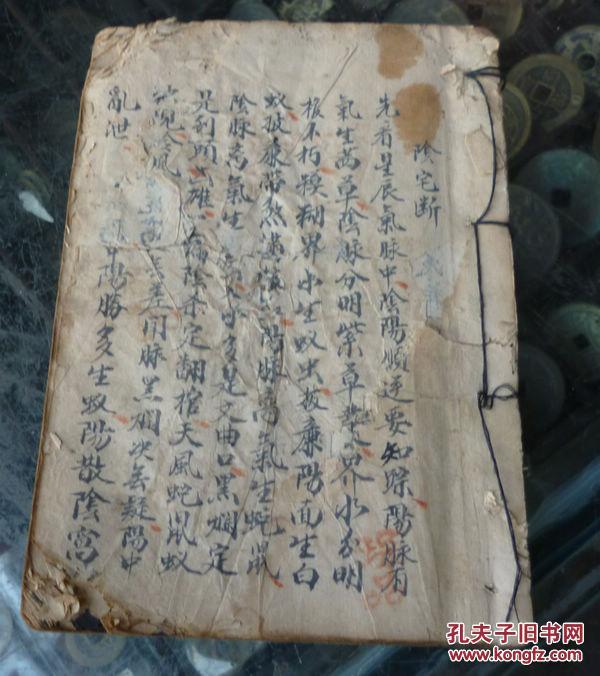 陰宅断
先看星辰氣脉中陰陽順逆要知踪陽脉有
氣生茜草陰脉分明紫草裝界水分明
板不朽模糊界水生蚁虫板廉陽面生白
蚁披廉帶煞陽脉高氣生蛇鼠
陰脉高氣生水多是文曲口黑烟定
是利頭雄陰杀定翻棺天風蛇鼠蚁
冷風差用脉黑烟决無疑陽中
亂泄陽勝多生蚁陽散陰宫
孔夫子旧书网
www.kongfz.com